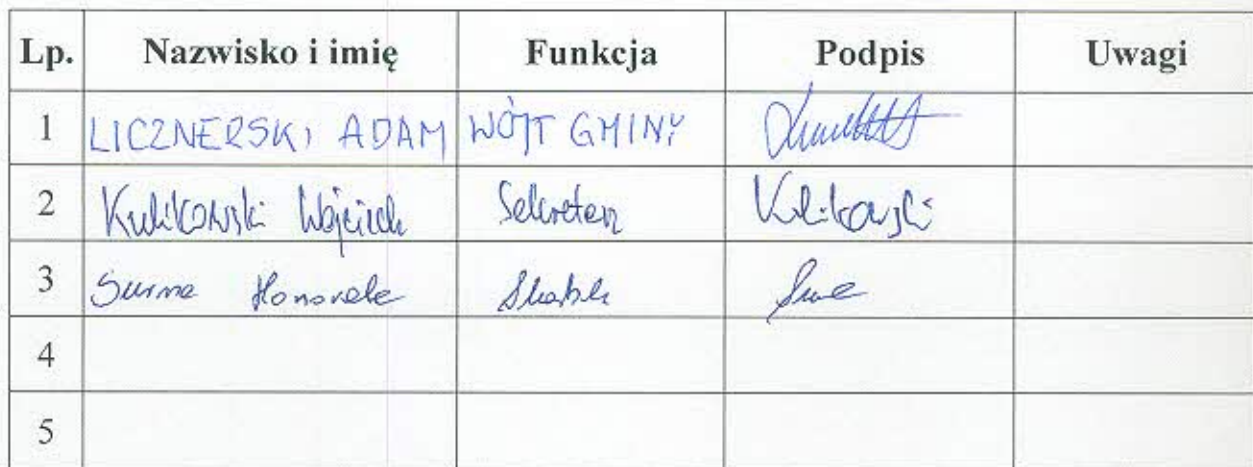 Lp. Nazwisko i imię Funkcja Podpis Uwagi
1 LICZNERSKI ADAM WÓJT GMINY
2 Kulikowski Wojciech Sekretarz Kulikowski
3 Surma Honorata Skarbnik
4
5